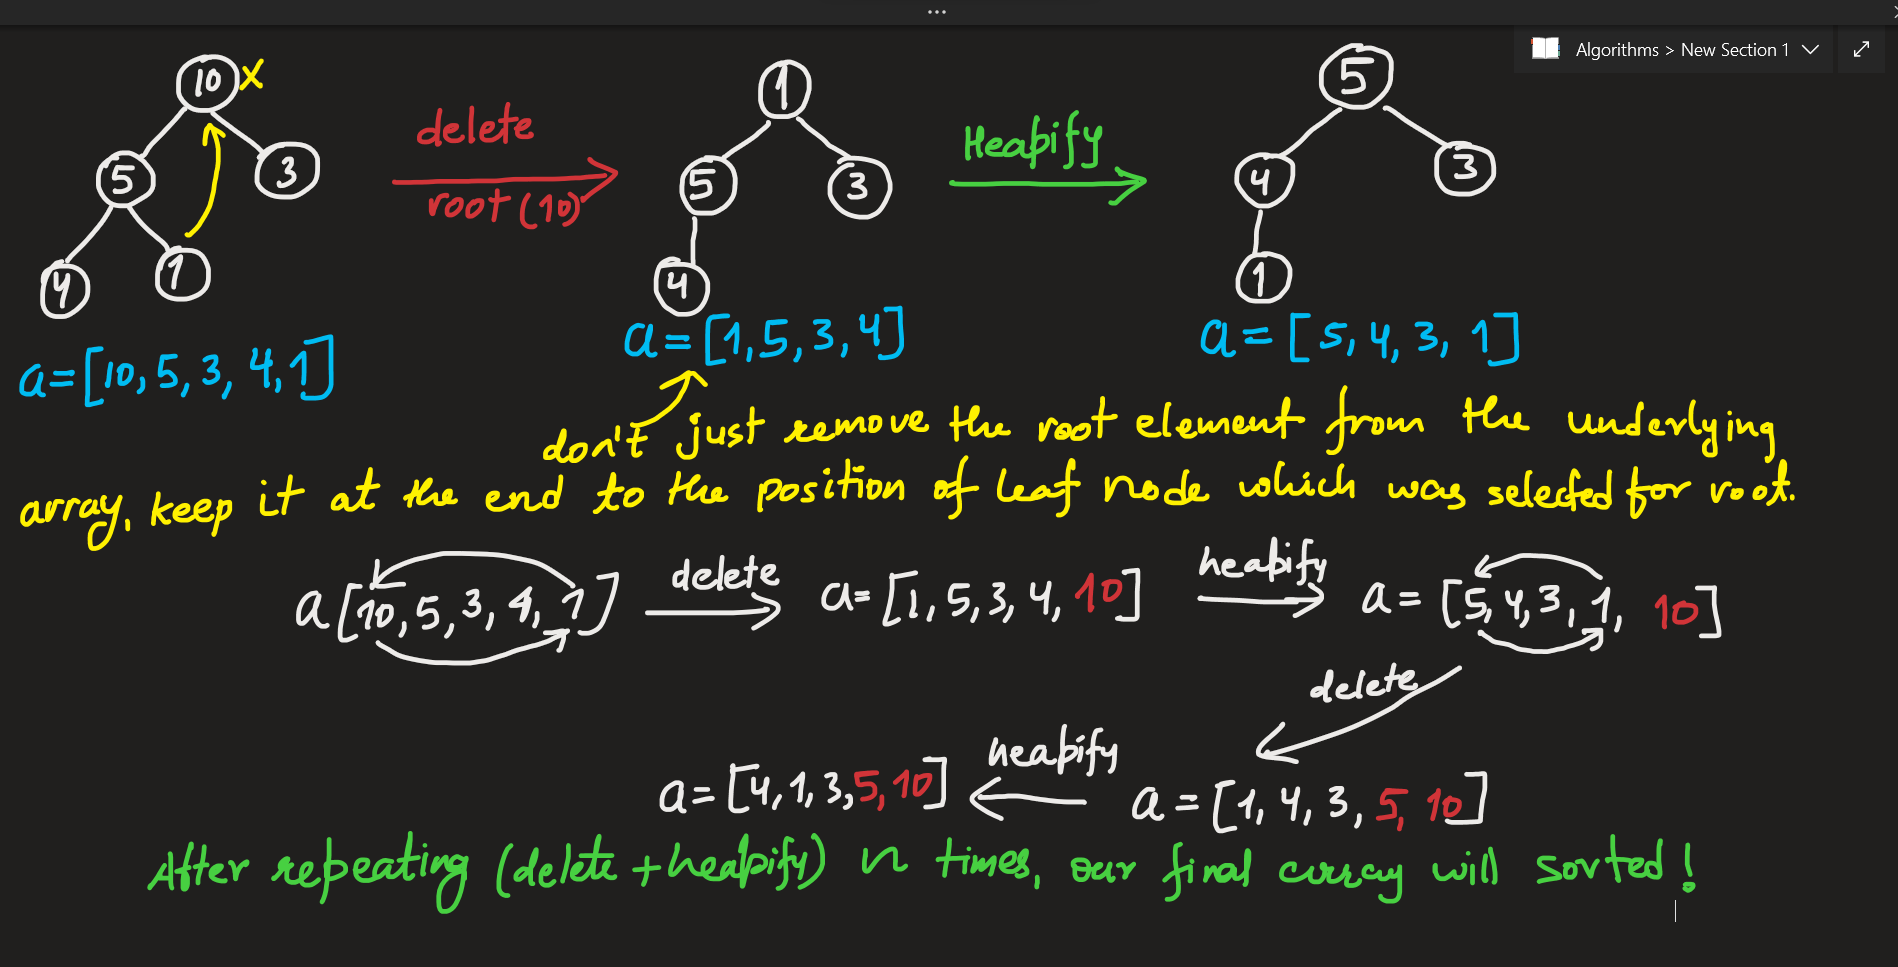 ...
Algorithms > New Section 1
10 x
5
3
4
1
delete
root (10)
1
5
3
4
Heapify
5
4
3
1
a=[10, 5, 3, 4, 1]
a=[1, 5, 3, 4]
a=[5, 4, 3, 1]
don't just remove the root element from the underlying
array, keep it at the end to the position of leaf node which was selected for root.
a[10, 5, 3, 4, 1] delete a=[1, 5, 3, 4, 10] heapify a=[5, 4, 3, 1, 10]
delete
a=[4, 1, 3, 5, 10] heapify a=[1, 4, 3, 5, 10]
After repeating (delete + heapify) n times, our final array will sorted!